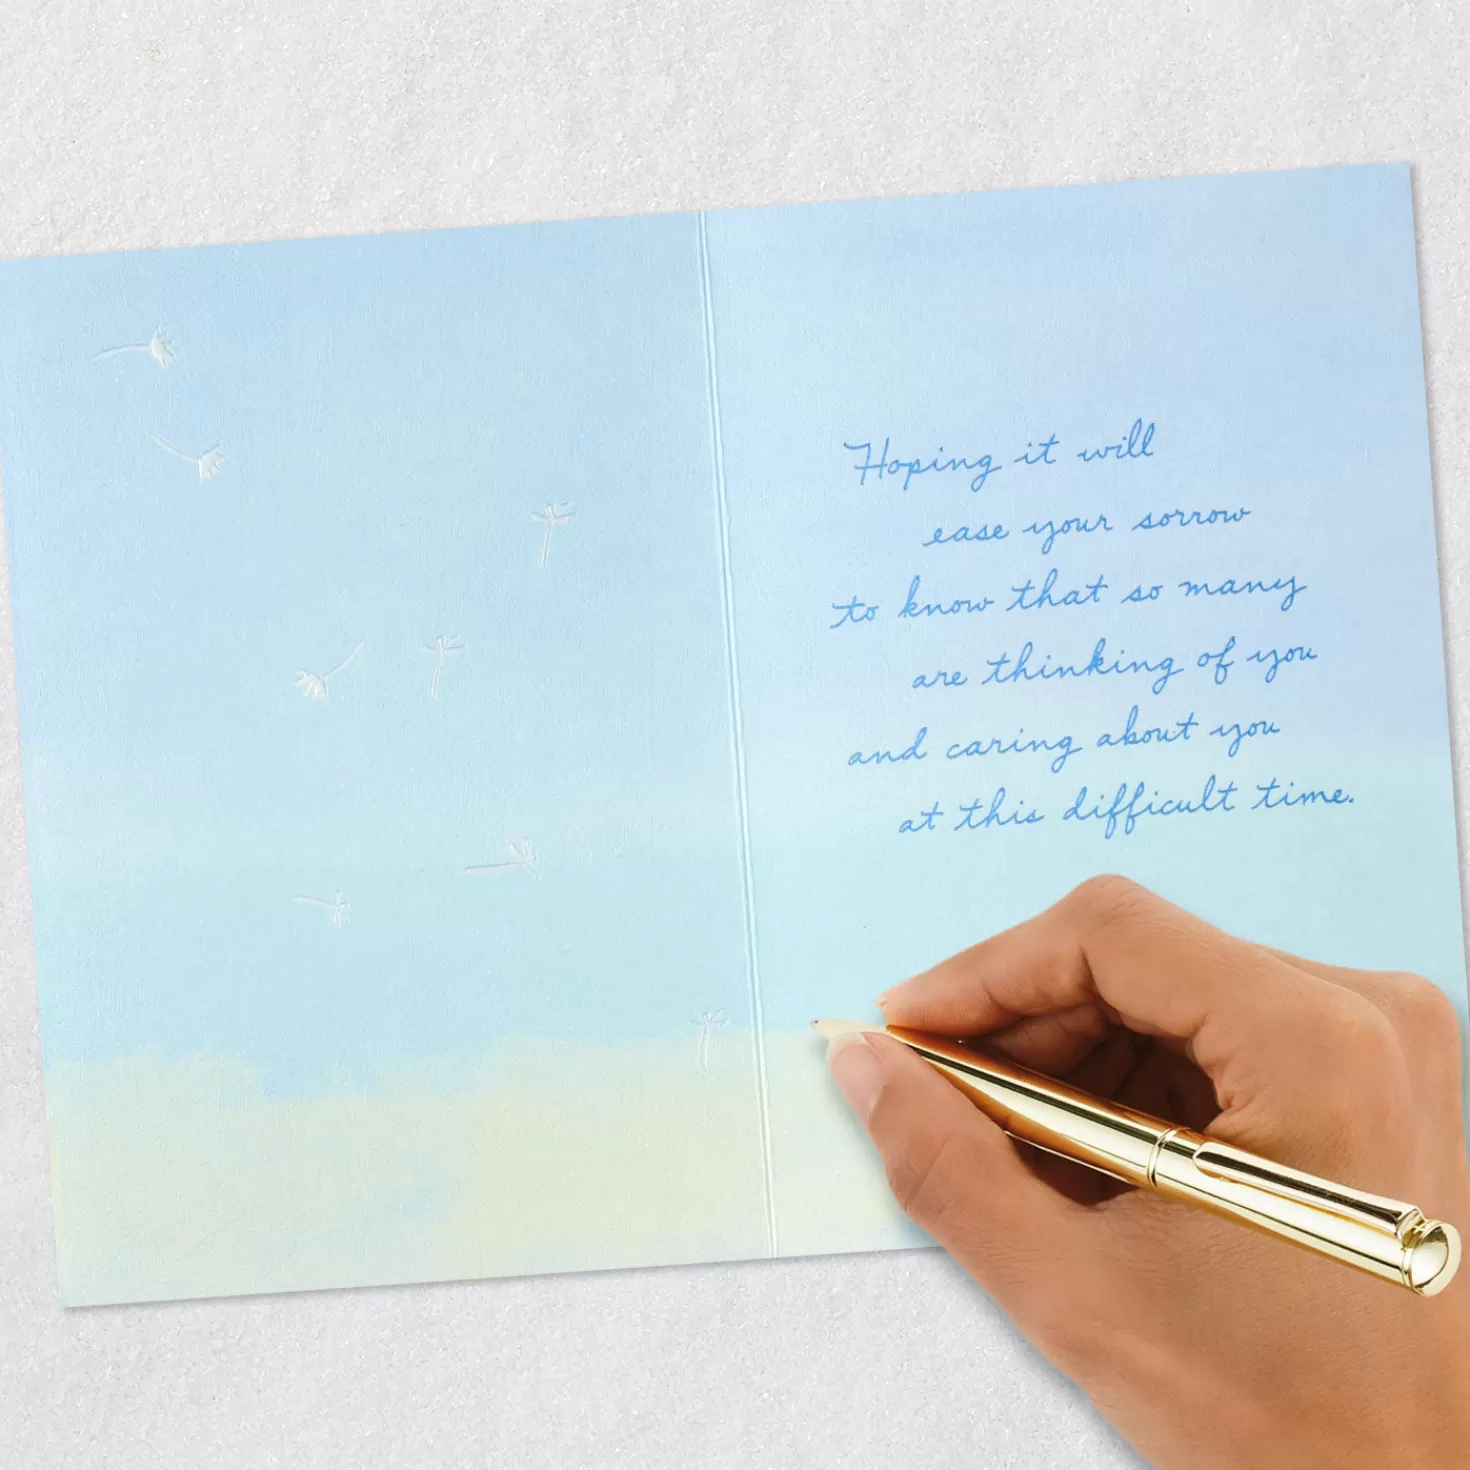 Hoping it will
ease your sorrow
to know that so many
are thinking of you
and caring about you
at this difficult time.